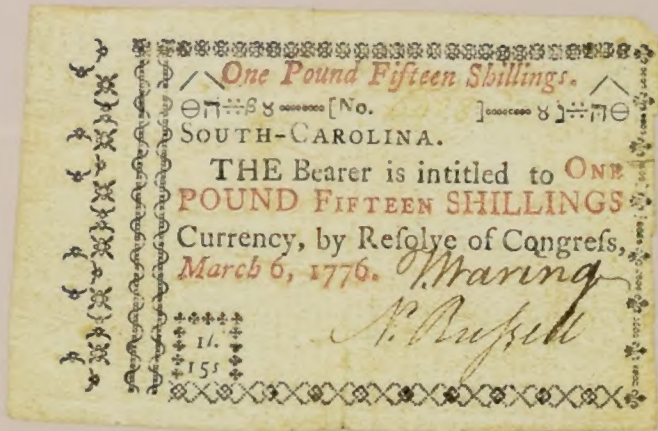 One Pound Fifteen Shillings.
[No. ]
SOUTH-CAROLINA.
THE Bearer is intitled to ONE
POUND FIFTEEN SHILLINGS
Currency, by Reſolve of Congreſs,
March 6, 1776.
Waring
N. Ruſsell
1l.
15s